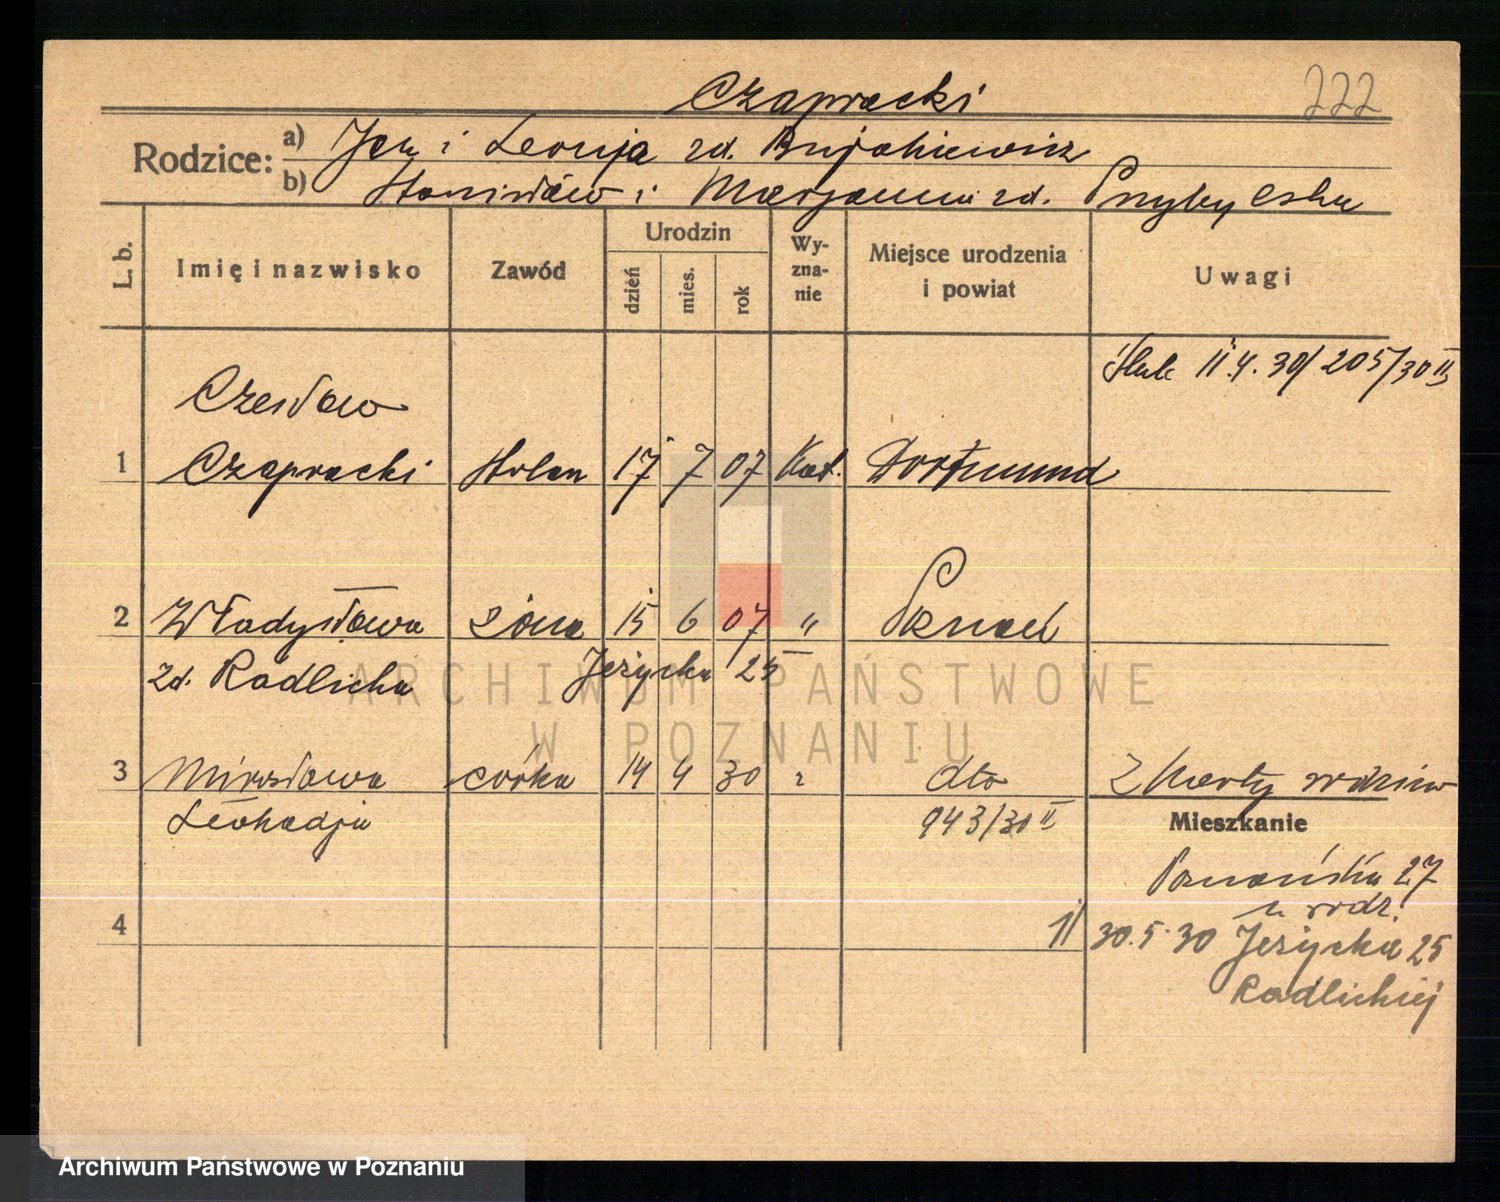 222
Czapracki
Rodzice:
a) Jan i Leonja zd. Bujakiewicz
b) Stanisław i Marjanna zd. Przybylska
L. b.
Imię i nazwisko
Zawód
Urodzin
dzień
mies.
rok
Wy-
zna-
nie
Miejsce urodzenia
i powiat
Uwagi
Ślub 11.4.30/205/30 II
Czesław
1 Czapracki Stolarz 17 7 07 Kat. Dortmund
2 Władysława żona 15 6 07 " Poznań
zd. Radlicka Jeżycka 25
3 Mirosława córka 14 4 30 " dto Z karty rodziców
Leokadja 943/30 II
Mieszkanie
Poznańska 27
u rodz.
4 30.5.30 Jeżycka 25
Radlickiej
ARCHIWUM PAŃSTWOWE
W POZNANIU
Archiwum Państwowe w Poznaniu